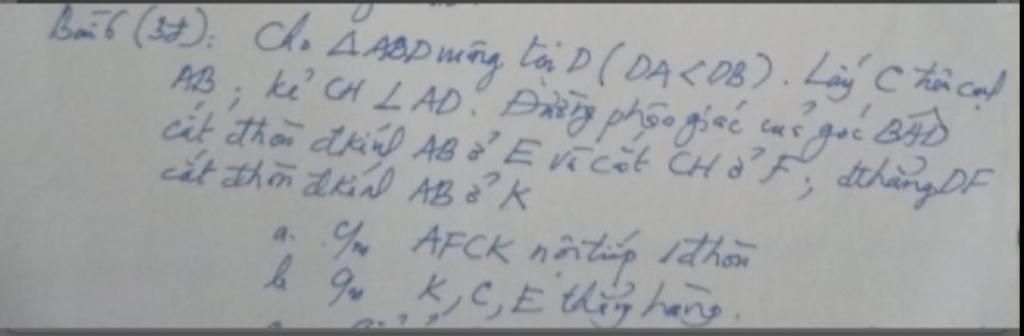 Bài 6 (3đ): Cho △ABD vuông tại D (DA < DB). Lấy C trên cạnh
AB; kẻ CH ⊥ AD. Đường phân giác của góc BAD
cắt đtròn đkính AB ở E và cắt CH ở F; đthẳng DF
cắt đtròn đkính AB ở K
a. c/m AFCK nội tiếp 1 đtròn
b c/m K, C, E thẳng hàng.